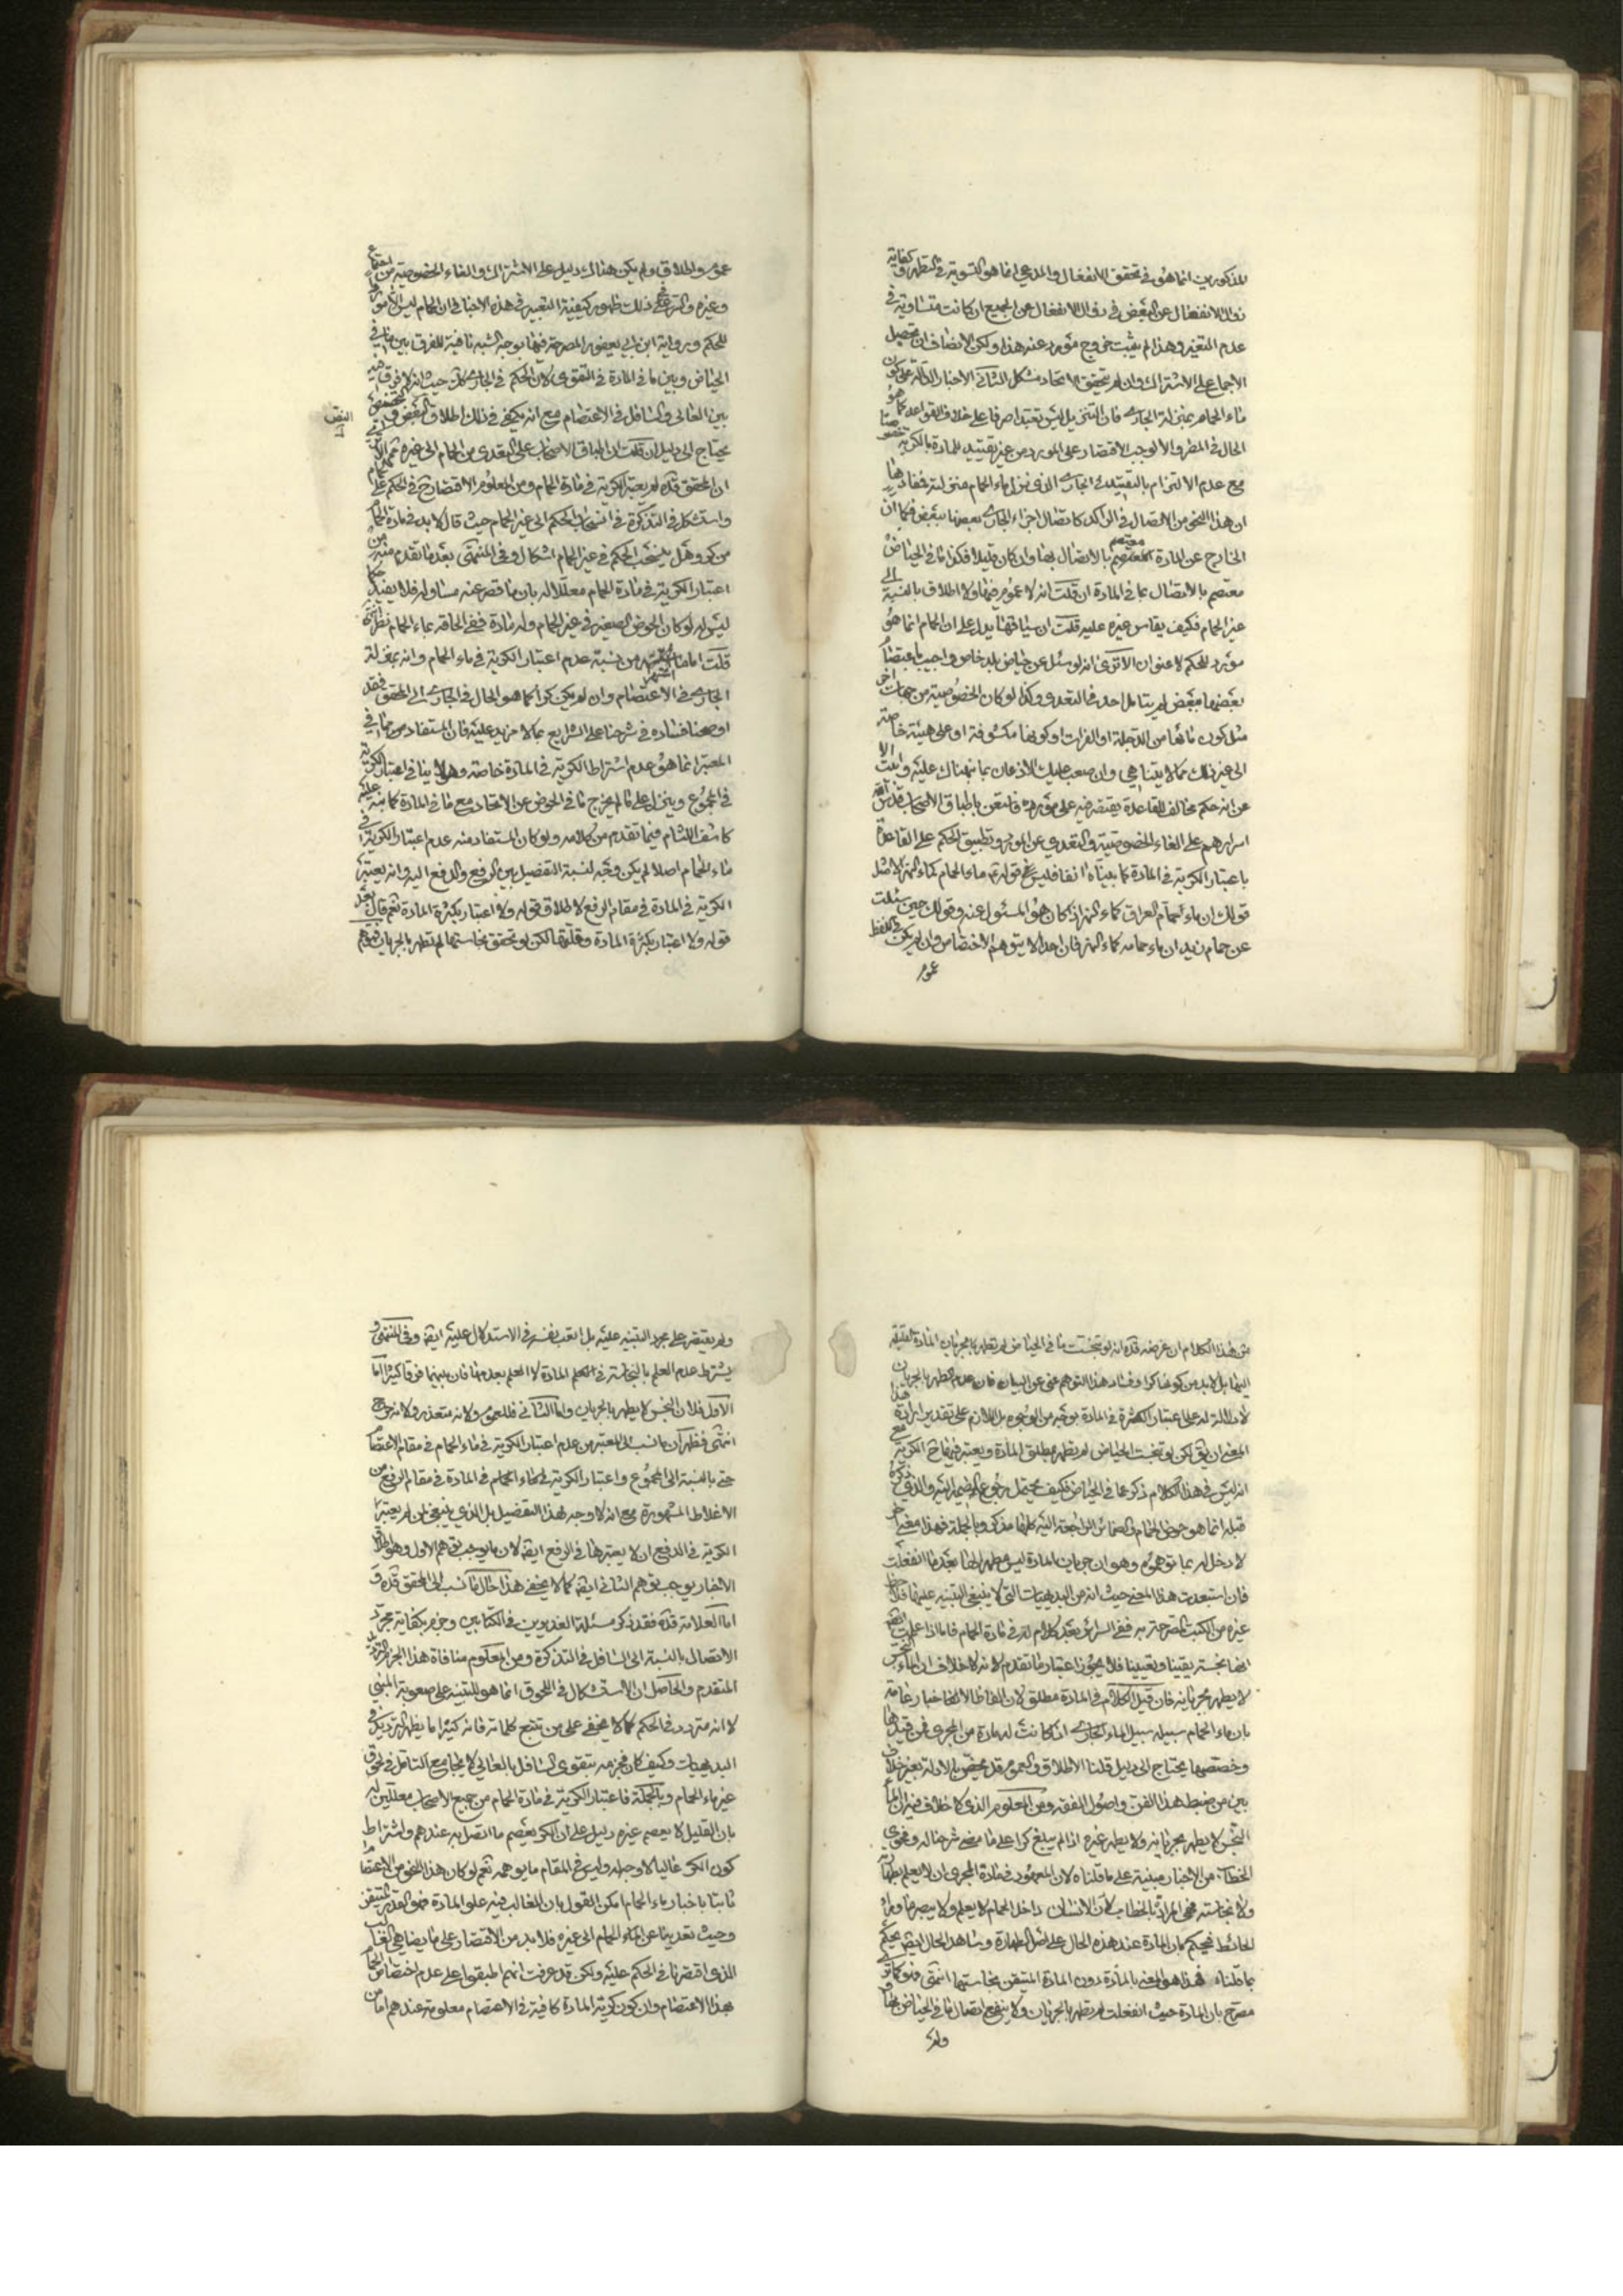 للمذكورين انما هو في تحقق الانفعال والمدعى انما هو التسوية في التطهر وكفاية
زوال الانفعال عن البعض في زوال الانفعال عن الجميع ان كانت متساوية في
عدم التغير وهذا لم يثبت خروج مورد عند هذا ولكن الانصاف ان تحصيل
الاجماع على الاشتراك وان لم يتحقق الاتحاد مشكل الثاني الاخبار الدالة على كون
ماء الحمام بمنزلة الجاري فان التنزيل ليس تعبدا صرفا على خلاف القواعد كما هو
الحال في المطر والا لوجب الاقتصار على المورد من غير تقييد للمادة بالكرية خصوصا
مع عدم الالتزام بالتقييد في الجاري الذي نزل ماء الحمام منزلته فمفاد هنا
ان هذا النحو من الاتصال في الراكد كاتصال اجزاء الجاري بعضها ببعض فكما ان
الخارج عن المادة معتصم بالاتصال بها وان كان قليلا فكذا ما في الحياض
معتصم بالاتصال بما في المادة ان قلت انه لا عموم فيها ولا اطلاق بالنسبة الى
غير الحمام فكيف يقاس غيره عليه قلت ان سياقها يدل على ان الحمام انما هو
مورد للحكم لا عنوان الا ترى انه لو سئل عن حياض بلد خاص واجيب باعتصام
بعضها ببعض لم يتامل احد في التعدي وكذا لو كان الخصوصية من جهات اخر
مثل كون مائها من الدجلة او الفرات او كونها مكشوفة او على هيئة خاصة
الى غير ذلك مما لا يتناهى وان صعب عليك الاذعان بما نبهناك عليه وابيت الا
عن انه حكم مخالف للقاعدة يقتصر فيه على مورده فلتعن باطباق الاصحاب قدس الله
اسرارهم على الغاء الخصوصية والتعدي عن المورد وتطبيق الحكم على القاعدة
باعتبار الكرية في المادة كما بيناه انفا فليس قوله ماء الحمام كماء النهر الا مثل
قولك ان ماء حمام العراق كماء النهر اذا كان هو المسئول عنه وقولك حين سئلت
عن حمام زيد ان ماء حمامه كماء النهر فان احدا لا يتوهم الاختصاص وان لم يكن في اللفظ
عموم
عموم واطلاق ولم يكن هناك دليل على الاشتراك والغاء الخصوصية من اجماع
وغيره والسر في ذلك ظهور كيفية التعبير في هذه الاخبار في ان الحمام ليس الا موردا
للحكم ورواية ابن ابي يعفور المصرحة فيها بوجه الشبه نافية للفرق بين ما في
الحياض وبين ما في المادة في التقوى لان الحكم في الجاري كك حيث انه لا فرق فيه
بين العالي والسافل في الاعتصام مع انه يكفي في ذلك اطلاق البعض وتخصيصه
يحتاج الى دليل ان قلت ان اطباق الاصحاب على التعدي من الحمام الى غيره ممنوع الا ترى
ان المحقق قده لم يعتبر الكرية في مادة الحمام ومن المعلوم الاقتصار ح في الحكم على الحمام
واستشكل في التذكرة في انسحاب الحكم الى غير الحمام حيث قال لا بد في مادة الحمام
من كر وهل ينسحب الحكم في غير الحمام اشكال وفي المنتهى بعد ما تقدم منه من
اعتبار الكرية في مادة الحمام معللا له بان ما قصر عنه مساو له فلا يفيده حكما
ليس له لو كان الحوض الصغير في غير الحمام وله مادة ففي الحاقه بماء الحمام نظر انتهى
قلت اما ما اشتهر من نسبة عدم اعتبار الكرية في ماء الحمام وانه بمنزلة
الجاري في الاعتصام وان لم يكن كرا كما هو الحال في الجاري الى المحقق فقد
اوضحنا فساده في شرحنا على الشرايع بما لا مزيد عليه فان المستفاد من ما في
المعتبر انما هو عدم اشتراط الكرية في المادة خاصة وهو لا ينافي اعتبار الكرية
في المجموع وينزل على ما لم يخرج ما في الحوض عن الاتحاد مع ما في المادة كما نبه عليه
كاشف اللثام فيما تقدم من كلامه ولو كان المستفاد منه عدم اعتبار الكرية في
ماء الحمام اصلا لم يكن وجه لنسبة التفصيل بين الرفع والدفع اليه وانه يعتبر
الكرية في المادة في مقام الرفع لاطلاق قوله ولا اعتبار بكثرة المادة نعم قال بعد
قوله ولا اعتبار بكثرة المادة وقلتها لكن لو تحقق نجاستها لم تطهر بالجريان فتوهم
من هذا الكلام ان غرضه قده انه لو تنجست ما في الحياض لم يطهر بجريان المادة القليلة
اليها بل لا بد من كونها كرا وفساد هذا التوهم غني عن البيان فان عدم التطهر بالجريان
لا دلالة له على اعتبار الكثرة في المادة بوجه من الوجوه بل اللازم على تقدير ارادة هذا
المعنى ان يق لكن لو تنجست الحياض لم يطهر بمطلق المادة ويعتبر فيها ح الكرية مع
انه ليس في هذا الكلام ذكر عما في الحياض فكيف يحتمل رجوع الضمير اليه والذي ذكره
قبله انما هو حوض الحمام والضمائر الراجعة اليه كلها مذكر وبالجملة فهذا معنى اخر
لا دخل له بما توهموه وهو ان جريان المادة ليس مطهرا لها بعد ما انفعلت
فان استبعدت هذا المعنى حيث انه من البديهيات التي لا ينبغي التنبيه عليها فلاحظ
غيره من الكتب المصرحة به ففي السرائر بعد كلام له في مادة الحمام فاما اذا علمت
انها نجسة يقينا وتعيينا فلا يجوز اعتبار ما تقدم لانه لا خلاف ان الماء النجس
لا يطهر بجريانه فان قيل الكلام في المادة مطلق لان الفاظ الاخبار عامة
بان ماء الحمام سبيله سبيل الماء الجاري اذا كانت له مادة من المجرى فمن قيدها
وخصصها يحتاج الى دليل قلنا الاطلاق والعموم قد يخص بالادلة بغير خلاف
بين من ضبط هذا الفن واصول الفقه ومن المعلوم الذي لا خلاف فيه ان الماء
النجس لا يطهر بجريانه ولا يطهر غيره اذا لم يبلغ كرا على ما مضى شرحنا له وفحوى
الخطاب من الاخبار مبنية على ما قلناه لان المعهود في مادة المجرى ان لا يعلم بطهارته
ولا نجاسته فهي المراد بالخطاب لان الانسان داخل الحمام لا يعلم ولا يبصر ما وراء
الحائط فيحكم بان المادة عند هذه الحال على اصل الطهارة وشاهد الحال ايضا يحكم
بما قلناه فهذا هو المعنى بالمادة دون المادة المتيقن نجاستها انتهى فهو كما ترى
مصرح بان المادة حيث انفعلت لم تطهر بالجريان ولا ينفع اتصال ما في الحياض بها
ولم
ولم يقتصر على مجرد التنبيه عليه بل اتعب نفسه في الاستدلال عليه ايضا وفي المنتهى و
يشترط عدم العلم بالنجاسة في المادة لا العلم بعدمها فان بينهما فرقا كثيرا اما
الاول فلان النجس لا يطهر بالجريان واما الثاني فللعموم ولانه متعذر ولانه حرج
انتهى فظهر ان ما نسب الى المعتبر من عدم اعتبار الكرية في ماء الحمام في مقام الاعتصام
حتى بالنسبة الى المجموع واعتبار الكرية في ماء الحمام في المادة في مقام الرفع من
الاغلاط المشهورة مع انه لا وجه لهذا التفصيل بل الذي ينبغي لمن لم يعتبر
الكرية في الدفع ان لا يعتبرها في الرفع ايضا لان ما يوجب توهم الاول وهو اطلاق
الاخبار يوجب توهم الثاني ايضا كما لا يخفى هذا حال ما نسب الى المحقق قده و
اما العلامة قده فقد ذكر مسئلة الغديرين في الكتابين وجزم بكفاية مجرد
الاتصال بالنسبة الى السافل في التذكرة ومن المعلوم منافاة هذا الجزم للتردد
المتقدم والحاصل ان الاستشكال في اللحوق انما هو للتنبيه على صعوبة المبنى
لا انه متردد في الحكم كما لا يخفى على من تتبع كلماته فانه كثيرا ما يظهر الترديد في
البديهيات وكيف كان فجزمه بتقوى السافل بالعالي لا يجامع التامل في لحوق
غير ماء الحمام وبالجملة فاعتبار الكرية في مادة الحمام من جميع الاصحاب معللين له
بان القليل لا يعصم غيره دليل على ان الكر يعصم ما اتصل به عندهم واشتراط
كون الكر عاليا لا وجه له وليس في المقام ما يوهمه نعم لو كان هذا النحو من الاعتصام
ثابتا باخبار ماء الحمام امكن القول بان الغالب فيه علو المادة فهو القدر المتيقن
وحيث تعدينا عن ماء الحمام الى غيره فلا بد من الاقتصار على ما يضاهي الغالب
الذي اقتصرنا في الحكم عليه ولكن قد عرفت انهم اطبقوا على عدم اختصاص الحمام
بهذا الاعتصام وان كون كرية المادة كافية في الاعتصام معلومة عندهم اما من